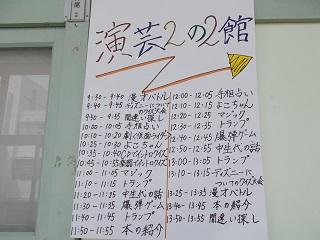 演芸2の2館
9:30 - 9:40 漫才バトル
9:40 - 9:45 ディズニーについて
のクイズ大会
9:50 - 9:35 間違い探し
10:00 - 10:05 手相占い
10:25 - 10:30 よこちゃん
10:35 - 10:40 CDでイントロクイズ
10:45 - 10:55 楽器でイントロクイズ
11:00 - 11:05 マジック
11:10 - 11:15 トランプ
11:20 - 11:25 中生代の話
11:30 - 11:35 爆弾ゲーム
11:40 - 11:45 トランプ
11:50 - 11:55 本の紹介
12:00 - 12:05 手相占い
12:10 - 12:15 よこちゃん
12:20 - 12:25 マジック
12:30 - 12:35 トランプ
12:40 - 12:45 爆弾ゲーム
12:50 - 12:55 中生代の話
13:00 - 13:05 トランプ
13:10 - 13:15 ディズニーに
ついてのクイズ大会
13:25 - 13:35 漫才バトル
13:40 - 13:45 本の紹介
13:50 - 13:55 間違い探し